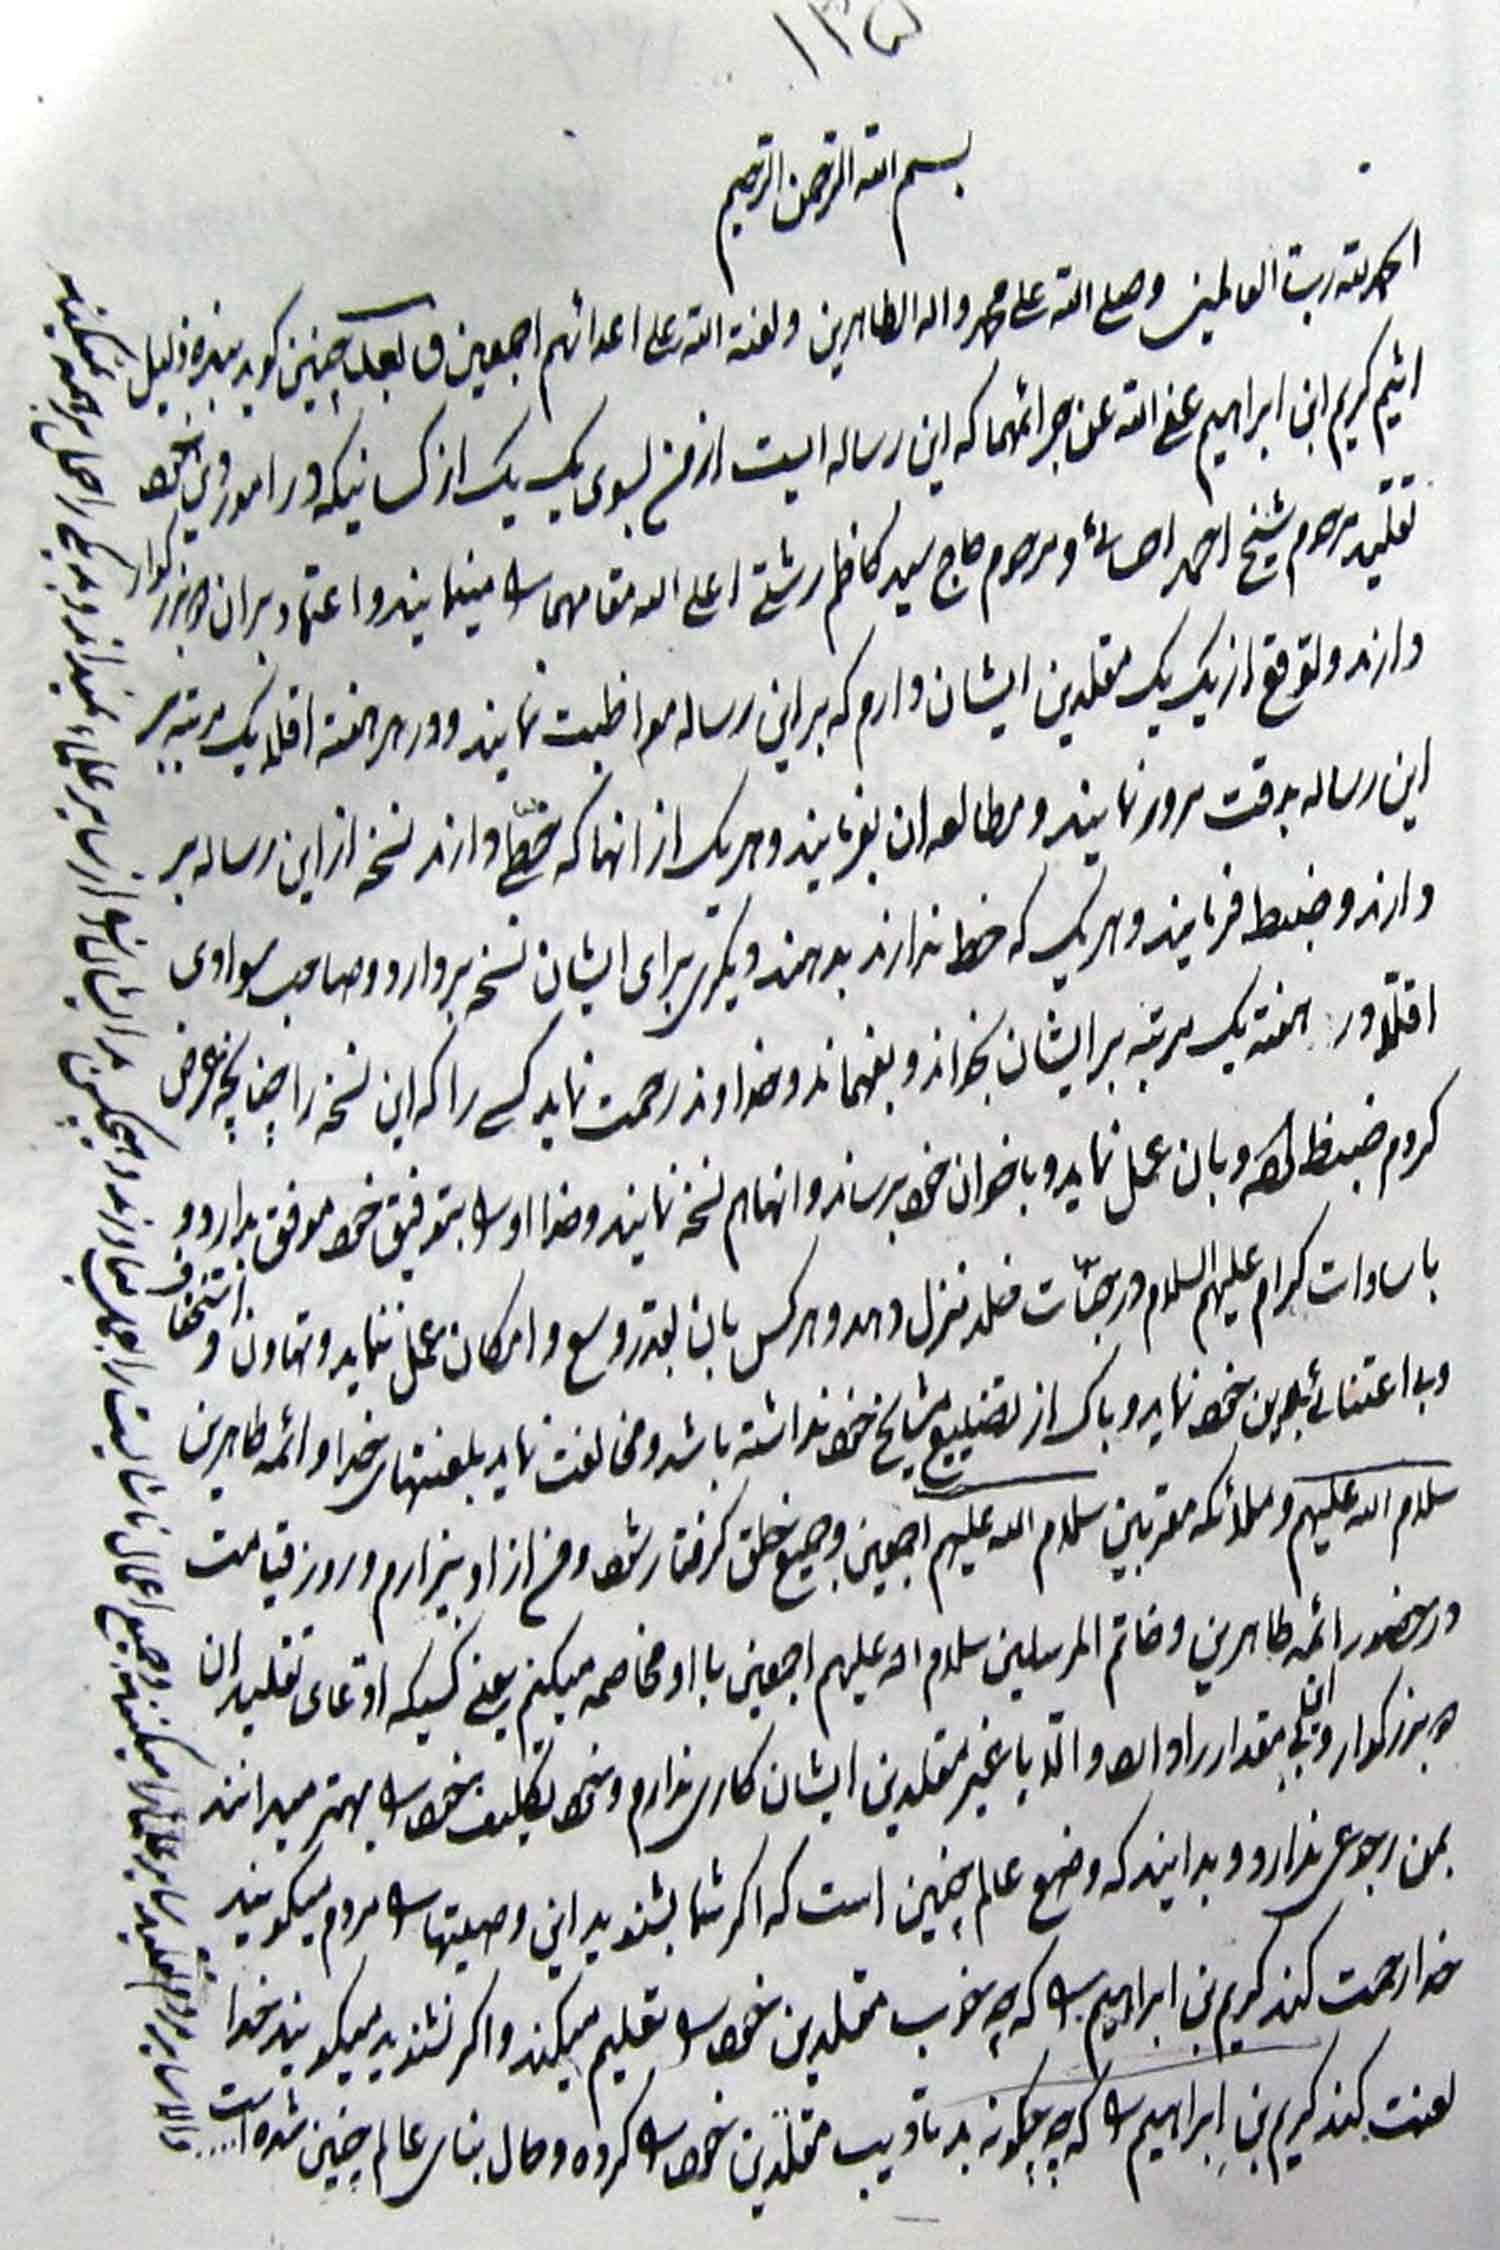 ۱۳۵
بسم الله الرحمن الرحیم
الحمد لله رب العالمین وصلی الله علی محمد واله الطاهرین ولعنة الله علی اعدائهم اجمعین و بعد چنین کوید بنده ذلیل
اثیم کریم ابن ابراهیم عفی الله عن جرائمهما که این رساله ایست از من بسوی یک یک از کسانیکه در امور دین خود
تقلید مرحوم شیخ احمد احسائی و مرحوم حاج سید کاظم رشتی اعلی الله مقامهما را مینمایند و اعتماد بران دو بزرکوار
دارند و توقع از یک یک مقلدین ایشان دارم که بر این رساله مواظبت نمایند و در هر هفته اقلا یک مرتبه بر
این رساله بدقت مرور نمایند و مطالعه ان بفرمایند و هر یک از انها که خطی دارند نسخه از این رساله بر
دارند و ضبط فرمایند و هر یک که خط ندارند بدهند دیگری برای ایشان نسخه بردارد و صاحب سوادی
اقلا در هفته یک مرتبه بر ایشان بخواند و بفهماند و خداوند رحمت نماید کسی را که این نسخه را چنانچه عرض
کردم ضبط کند و بان عمل نماید و باخوان خود برساند و انها هم نسخه نمایند و خدا او را بتوفیق خود موفق بدارد و
با سادات کرام علیهم السلام در جنات خلد منزل دهد و هر کس بان بقدر وسع و امکان عمل ننماید و تهاون و استخفاف
و بی اعتنائی بدین خود نماید و باک از تضییع مشایخ خود نداشته باشد و مخالفت نماید بلعنتهای خدا و ائمه طاهرین
سلام الله علیهم و ملائکه مقربین سلام الله علیهم اجمعین و جمیع خلق کرفتار شود و من از او بیزارم و روز قیامت
در حضور ائمه طاهرین و خاتم المرسلین سلام الله علیهم اجمعین با او مخاصمه میکنم یعنی کسیکه ادعای تقلید ان
دو بزرکوار و این بی مقدار را دارد و الا با غیر مقلدین ایشان کاری ندارم و خود تکلیف خود را بهتر میدانند
بمن رجوعی ندارد و بدانید که وضع عالم چنین است که اکر شما بشنوید این وصیتها را مردم میکویند
خدا رحمت کند کریم بن ابراهیم را که چه خوب مقلدین خود را تعلیم میکند و اکر نشنوید میکویند خدا
لعنت کند کریم بن ابراهیم را که چه چکونه بد تادیب مقلدین خود را کرده و حال بنای عالم چنین شده است